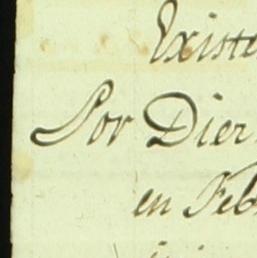 Existe
Por Dier
en Feb